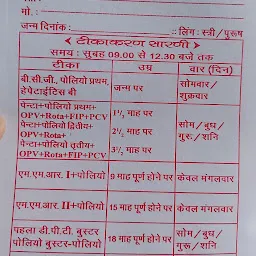 मो. :
जन्म दिनांक : :: लिंग : स्त्री / पुरूष
टीकाकरण सारणी
समय : सुबह 09.00 से 12.30 बजे तक
टीका उम्र वार (दिन)
बी.सी.जी., पोलियो प्रथम, हेपेटाईटिस बी जन्म पर सोमवार / शुक्रवार
पेन्टा+पोलियो प्रथम+
OPV+Rota+FIP+PCV 1½ माह पर
पेन्टा+पोलियो द्वितीय+
OPV+Rota+ 2½ माह पर सोम / बुध / गुरू / शनि
पेन्टा+पोलियो तृतीय+
OPV+Rota+FIP+PCV 3½ माह पर
एम.एम.आर. I+पोलियो 9 माह पूर्ण होने पर केवल मंगलवार
एम.एम.आर. II+पोलियो 15 माह पूर्ण होने पर केवल मंगलवार
पहला डी.पी.टी. बुस्टर
पोलियो बुस्टर-पोलियो 18 माह पूर्ण होने पर सोम / बुध / गुरू / शनि